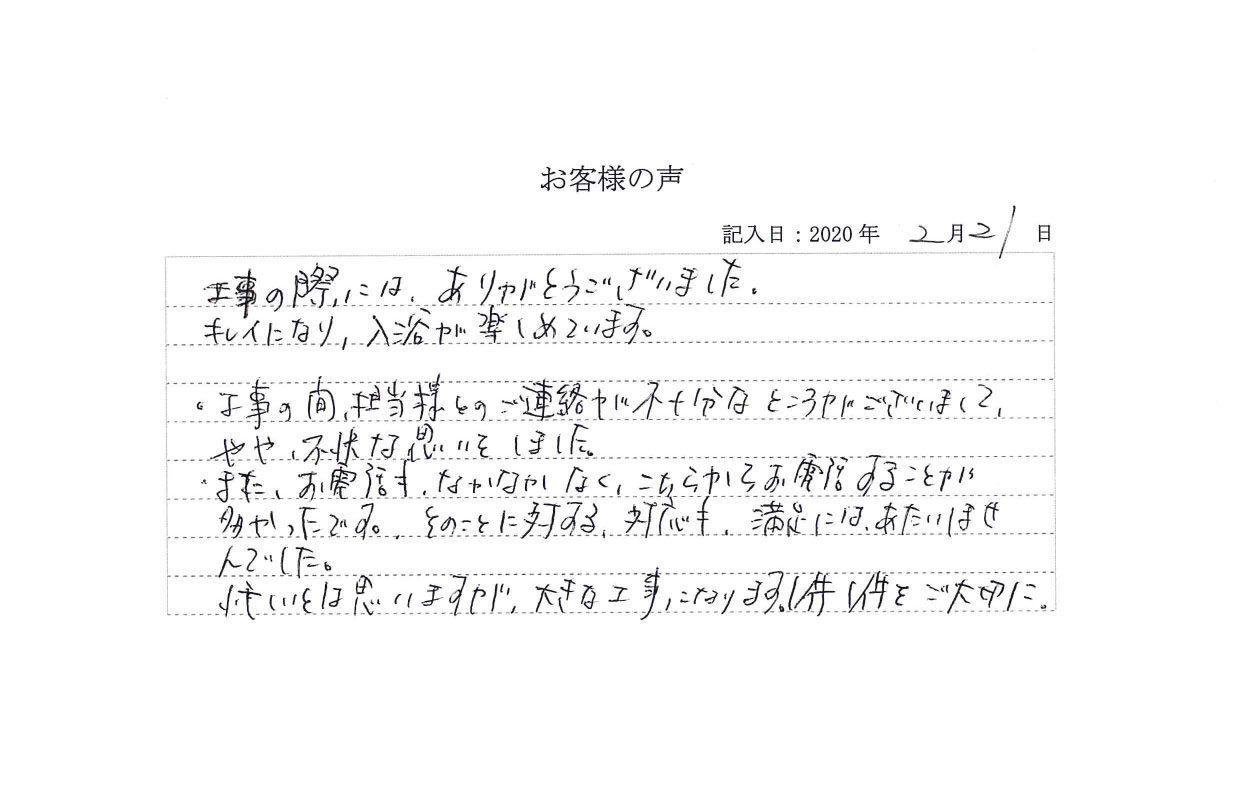 お客様の声
記入日：2020年 2月21日
工事の際には、ありがとうございました。
キレイになり、入浴が楽しめています。
・工事の間、担当様とのご連絡が不十分なところがございまして、
やや、不快な思いをしました。
・また、お電話も、なかなかなく、こちらからお電話することが
多かったです。そのことに対する、対応も、満足には、あたいしませ
んでした。
忙しいとは思いますが、大きな工事になります。1件1件をご大切に。